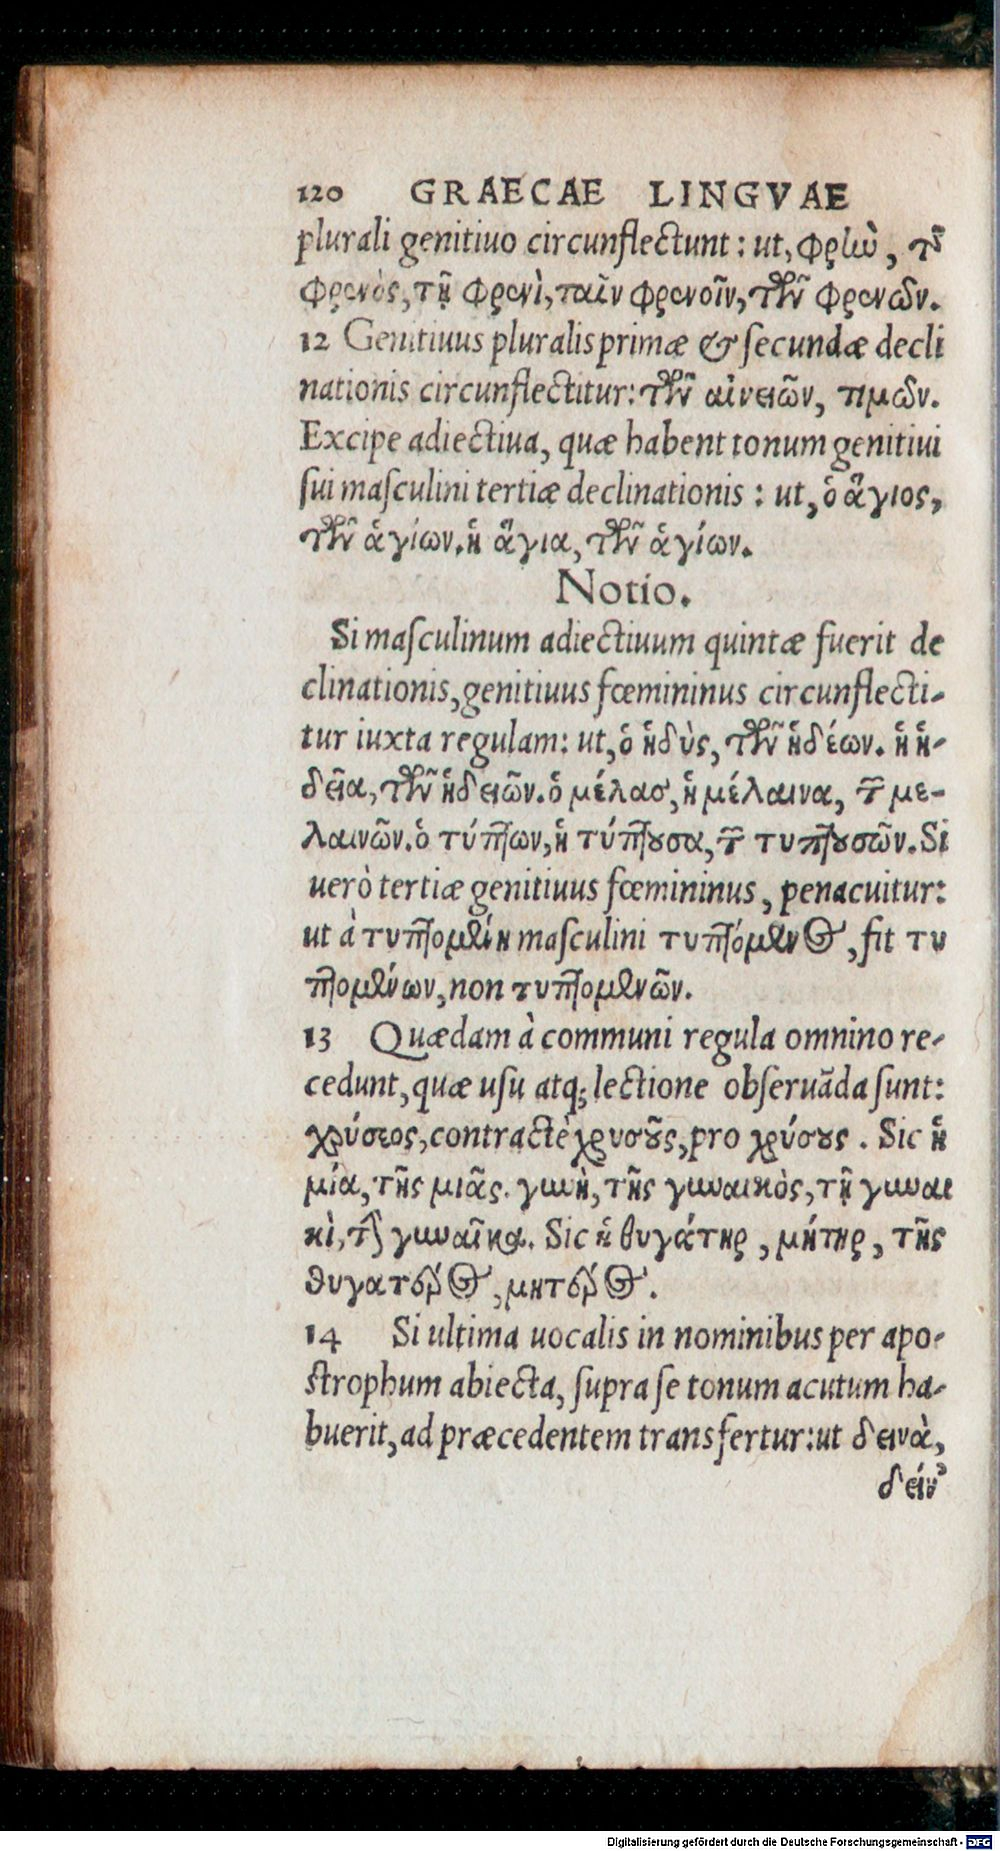 120 GRAECAE LINGVAE
plurali genitiuo circunflectunt: ut, φρὴν, τῆς
φρενὸς, τῇ φρενὶ, ταῖν φρενοῖν, τῶν φρενῶν.
12 Genitiuus pluralis primæ & secundæ decli
nationis circunflectitur: τῶν αἰνειῶν, τιμῶν.
Excipe adiectiua, quæ habent tonum genitiui
sui masculini tertiæ declinationis: ut, ὁ ἅγιος,
τῶν ἁγίων. ἡ ἅγια, τῶν ἁγίων.
Notio.
Si masculinum adiectiuum quintæ fuerit de
clinationis, genitiuus fœmininus circunflecti-
tur iuxta regulam: ut, ὁ ἡδὺς, τῶν ἡδέων. ἡ ἡ-
δεῖα, τῶν ἡδειῶν. ὁ μέλας, ἡ μέλαινα, τῶν με-
λαινῶν. ὁ τύπτων, ἡ τύπτουσα, τῶν τυπτουσῶν. Si
uerò tertiæ genitiuus fœmininus, penacuitur:
ut à τυπτομένη masculini τυπτόμενος, fit τυ
πτομένων, non τυπτομενῶν.
13 Quædam à communi regula omnino re-
cedunt, quæ usu atq; lectione obseruāda sunt:
χρύσεος, contractè χρυσοῦς, pro χρύσους. Sic ἡ
μία, τῆς μιᾶς. γυνὴ, τῆς γυναικὸς, τῇ γυναι
κὶ, τὴν γυναῖκα. Sic ἡ θυγάτηρ, μήτηρ, τῆς
θυγατέρος, μητέρος.
14 Si ultima uocalis in nominibus per apo-
strophum abiecta, supra se tonum acutum ha-
buerit, ad præcedentem transfertur: ut δεινὰ,
δείν'
Digitalisierung gefördert durch die Deutsche Forschungsgemeinschaft - DFG